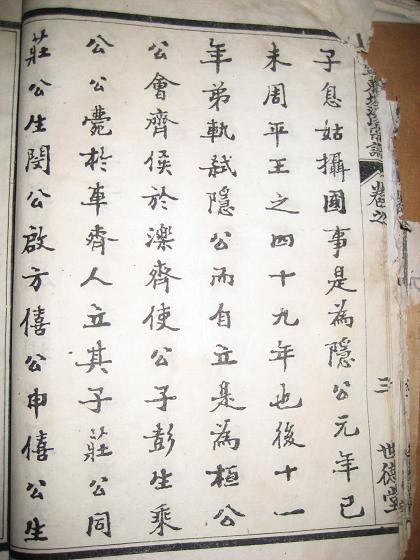 卷之 三 世德堂
子息姑攝國事是為隱公元年己
未周平王之四十九年也後十一
年弟軌弒隱公而自立是為桓公
公會齊侯於濼齊使公子彭生乘
公公薨於車齊人立其子莊公同
莊公生閔公啟方僖公申僖公生